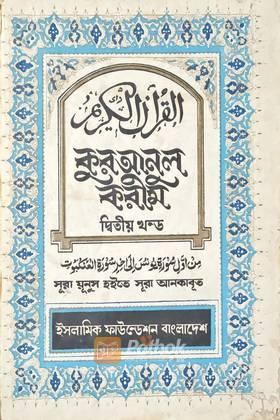 القرآن الكريم
কুরআনুল
করীম
দ্বিতীয় খন্ড
من اول سورة يونس الى اخر سورة العنكبوت
সূরা য়ূনুস হইতে সূরা আনকাবূত
ইসলামিক ফাউন্ডেশন বাংলাদেশ
Pathok